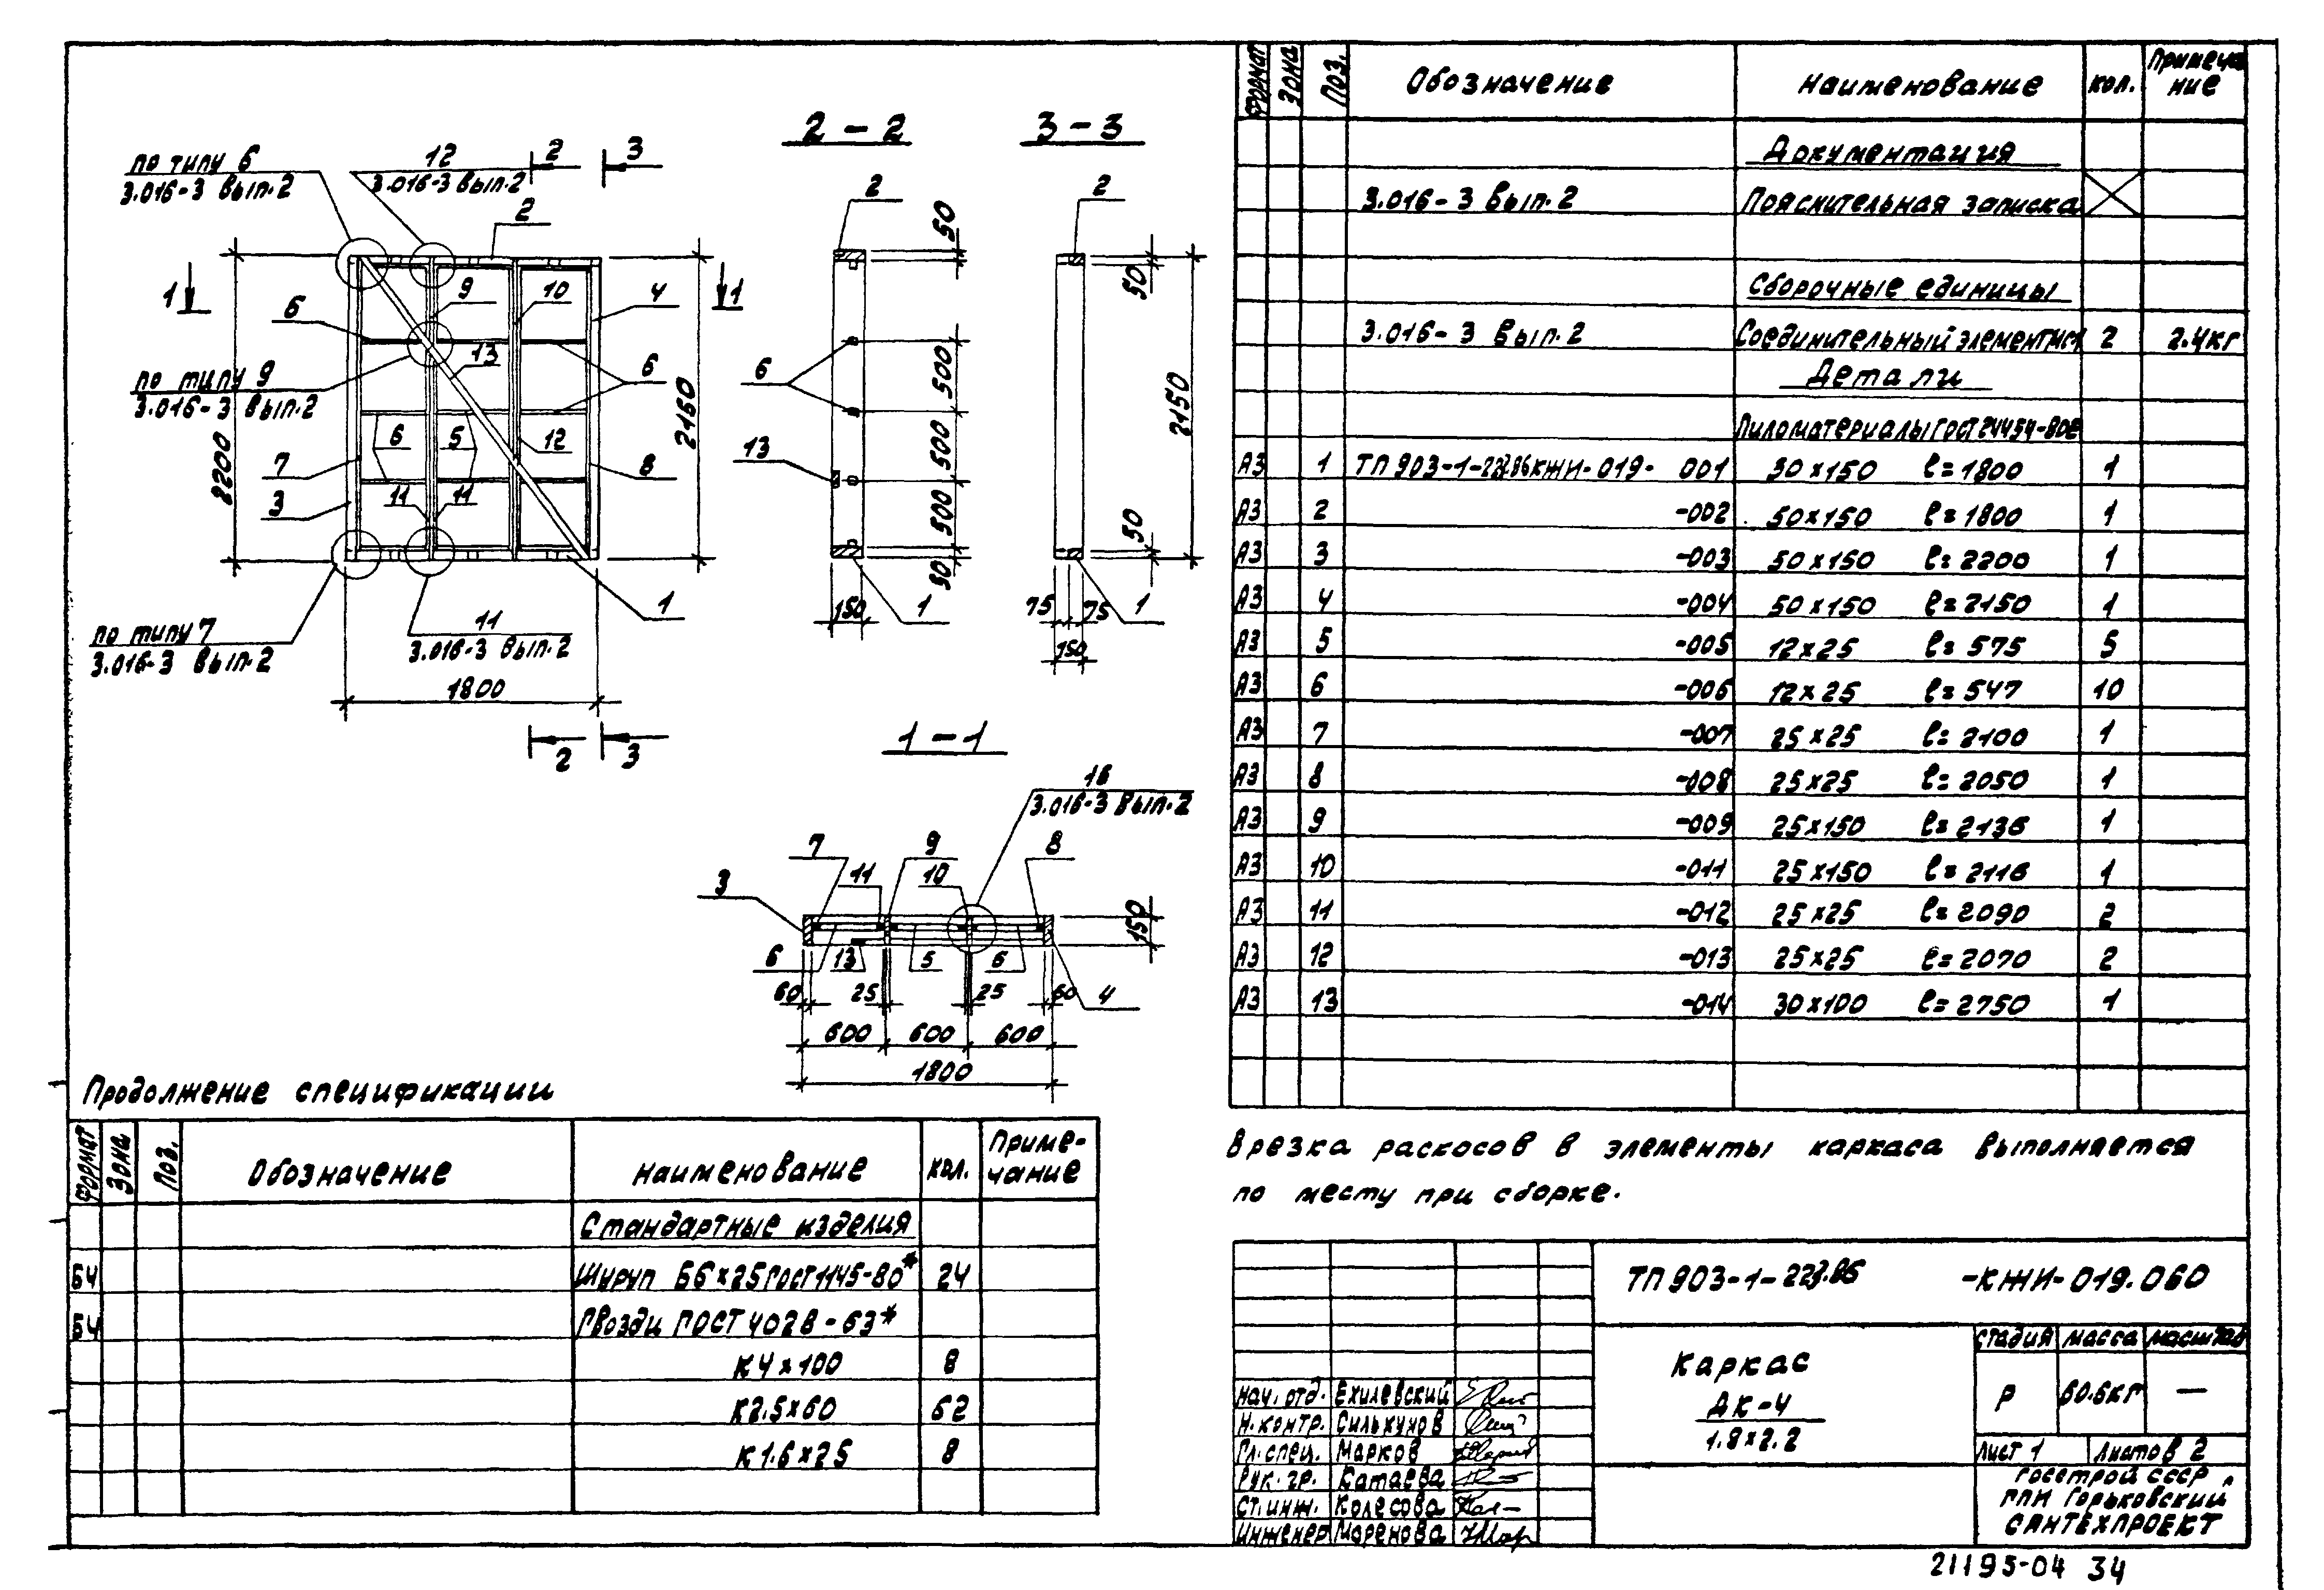 по типу 6
3.016-3 вып.2
12
3.016-3 вып.2
2
3
2
1
1
9
10
4
6
13
6
по типу 9
3.016-3 вып.2
6
5
12
7
8
11
11
3
2200
2160
по типу 7
3.016-3 вып.2
11
3.016-3 вып.2
1
1800
2
3
2-2
2
50
6
500
13
500
500
50
150
1
3-3
2
50
2150
50
75
75
150
1
1-1
16
3.016-3 вып.2
7
9
8
11
10
3
150
6
13
5
6
4
60
25
25
60
600
600
600
1800
Формат Зона Поз. Обозначение Наименование кол. Примечание
Документация
3.016-3 вып.2 Пояснительная записка
Сборочные единицы
3.016-3 вып.2 Соединительный элемент 2 2.4кг
Детали
Пиломатериалы ГОСТ 24454-80Е
А3 1 ТП 903-1- КЖИ-019- 001 30×150 ℓ=1800 1
А3 2 -002 50×150 ℓ=1800 1
А3 3 -003 50×150 ℓ=2200 1
А3 4 -004 50×150 ℓ=2150 1
А3 5 -005 12×25 ℓ=575 5
А3 6 -006 12×25 ℓ=547 10
А3 7 -007 25×25 ℓ=2100 1
А3 8 -008 25×25 ℓ=2050 1
А3 9 -009 25×150 ℓ=2136 1
А3 10 -011 25×150 ℓ=2116 1
А3 11 -012 25×25 ℓ=2090 2
А3 12 -013 25×25 ℓ=2070 2
А3 13 -014 30×100 ℓ=2750 1
Врезка раскосов в элементы каркаса выполняется
по месту при сборке.
Продолжение спецификации
Формат Зона Поз. Обозначение Наименование кол. Приме-
чание
Стандартные изделия
БЧ Шуруп Б6×25 ГОСТ 1145-80* 24
БЧ Гвозди ГОСТ 4028-63*
К4×100 8
К2.5×60 62
К1.6×25 8
ТП 903-1- -КЖИ-019.060
Каркас
ДК-4
1.8×2.2
стадия масса масштаб
Р 60.6кг —
лист 1 листов 2
Госстрой СССР
ГПИ Горьковский
САНТЕХПРОЕКТ
нач. отд. Ехилевский
Н.контр. Силькунов
Гл.спец. Марков
Рук.гр. Катаева
ст.инж. Колесова
инженер Моренова
21195-04 34